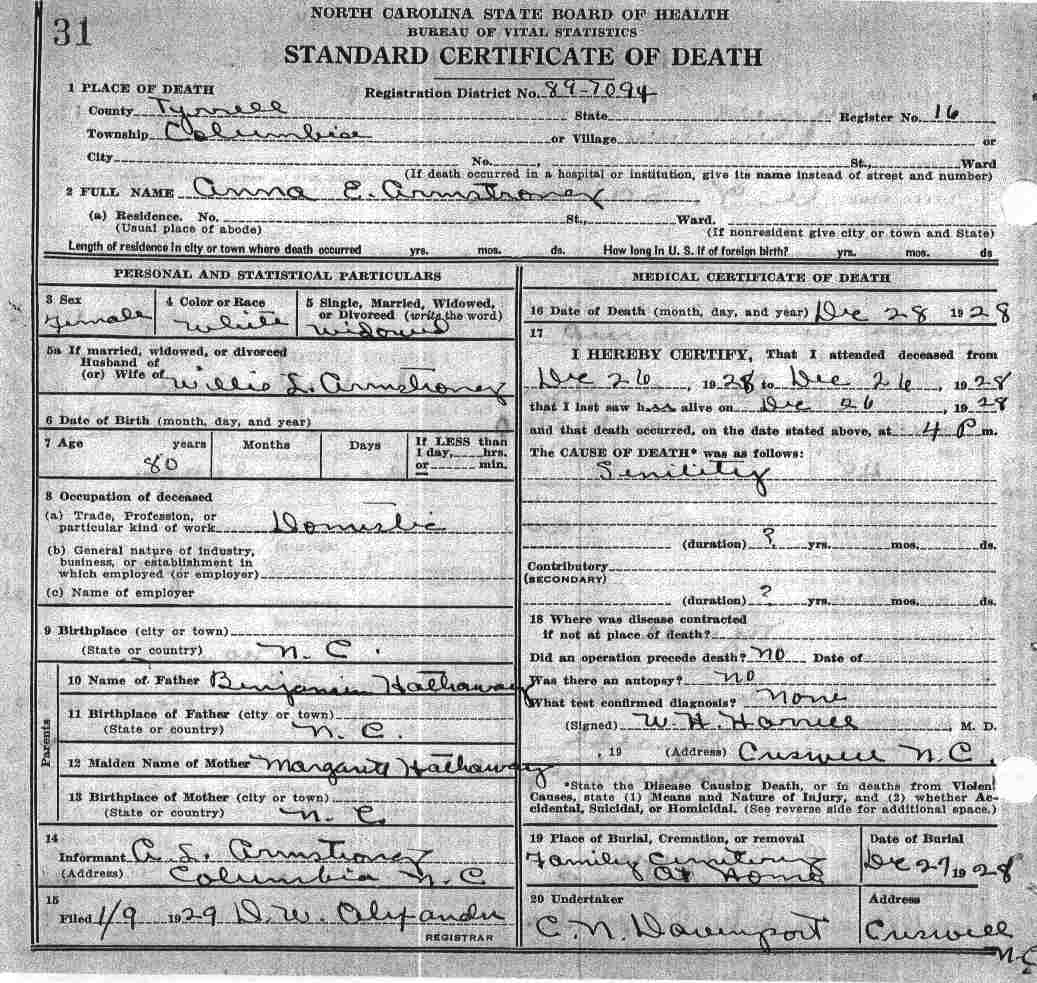 31
NORTH CAROLINA STATE BOARD OF HEALTH
BUREAU OF VITAL STATISTICS
STANDARD CERTIFICATE OF DEATH
1 PLACE OF DEATH Registration District No. 89-7094
County Tyrrell State Register No. 16
Township Columbia or Village or
City No. , St., Ward
(If death occurred in a hospital or institution, give its name instead of street and number)
2 FULL NAME Anna E. Armstrong
(a) Residence. No. St., Ward.
(Usual place of abode) (If nonresident give city or town and State)
Length of residence in city or town where death occurred yrs. mos. ds. How long in U. S. if of foreign birth? yrs. mos. ds
PERSONAL AND STATISTICAL PARTICULARS
3 Sex 4 Color or Race 5 Single, Married, Widowed,
or Divorced (write the word)
Female White Widowed
5a If married, widowed, or divorced
Husband of
(or) Wife of Willis L. Armstrong
6 Date of Birth (month, day, and year)
7 Age years Months Days If LESS than
1 day, hrs.
or min.
80
8 Occupation of deceased
(a) Trade, Profession, or
particular kind of work Domestic
(b) General nature of industry,
business, or establishment in
which employed (or employer)
(c) Name of employer
9 Birthplace (city or town)
(State or country) N. C.
Parents
10 Name of Father Benjamin Hathaway
11 Birthplace of Father (city or town)
(State or country) N. C.
12 Maiden Name of Mother Margarett Hathaway
13 Birthplace of Mother (city or town)
(State or country) N. C.
14
Informant A. L. Armstrong
(Address) Columbia N. C
15
Filed 1/9 1929 D. W. Alexander
REGISTRAR
MEDICAL CERTIFICATE OF DEATH
16 Date of Death (month, day, and year) Dec 28 1928
17
I HEREBY CERTIFY, That I attended deceased from
Dec 26, 1928 to Dec 26, 1928
that I last saw h alive on Dec 26, 1928
and that death occurred, on the date stated above, at 4 P m.
The CAUSE OF DEATH* was as follows:
Senility
(duration) ? yrs. mos. ds.
Contributory
(SECONDARY)
(duration) ? yrs. mos. ds.
18 Where was disease contracted
if not at place of death?
Did an operation precede death? No Date of
Was there an autopsy? No
What test confirmed diagnosis? None
(Signed) W. H. , M. D.
, 19 (Address) Creswell N. C.
*State the Disease Causing Death, or in deaths from Violent
Causes, state (1) Means and Nature of Injury, and (2) whether Ac-
cidental, Suicidal, or Homicidal. (See reverse side for additional space.)
19 Place of Burial, Cremation, or removal Date of Burial
Family Cemetery Dec 27 1928
At Home
20 Undertaker Address
C. N. Davenport Creswell
N.C